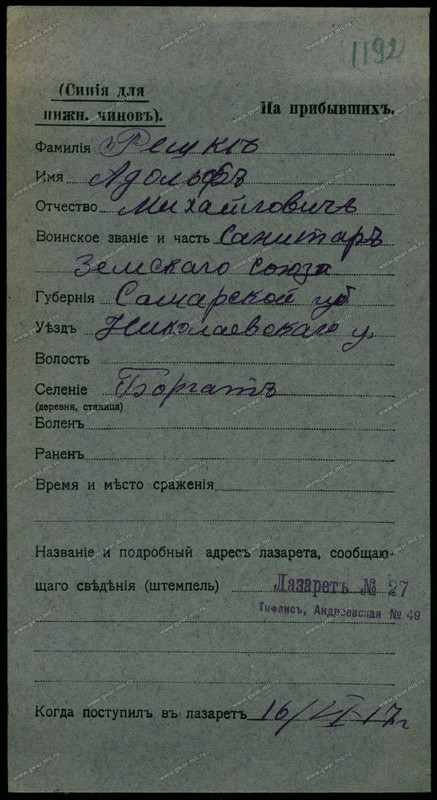 1192
(Синія для
нижн. чиновъ).
На прибывшихъ.
Фамилія Решке
Имя Адольфъ
Отчество Михайловичъ
Воинское званіе и часть Санитаръ
Земскаго союза
Губернія Самарской губ
Уѣздъ Николаевскаго у.
Волость
Селеніе Боргатъ
(деревня, станица)
Боленъ
Раненъ
Время и мѣсто сраженія
Названіе и подробный адресъ лазарета, сообщаю-
щаго свѣдѣнія (штемпель) Лазаретъ № 27
Тифлисъ, Андреевская № 49
Когда поступилъ въ лазаретъ 16/VI 17 г